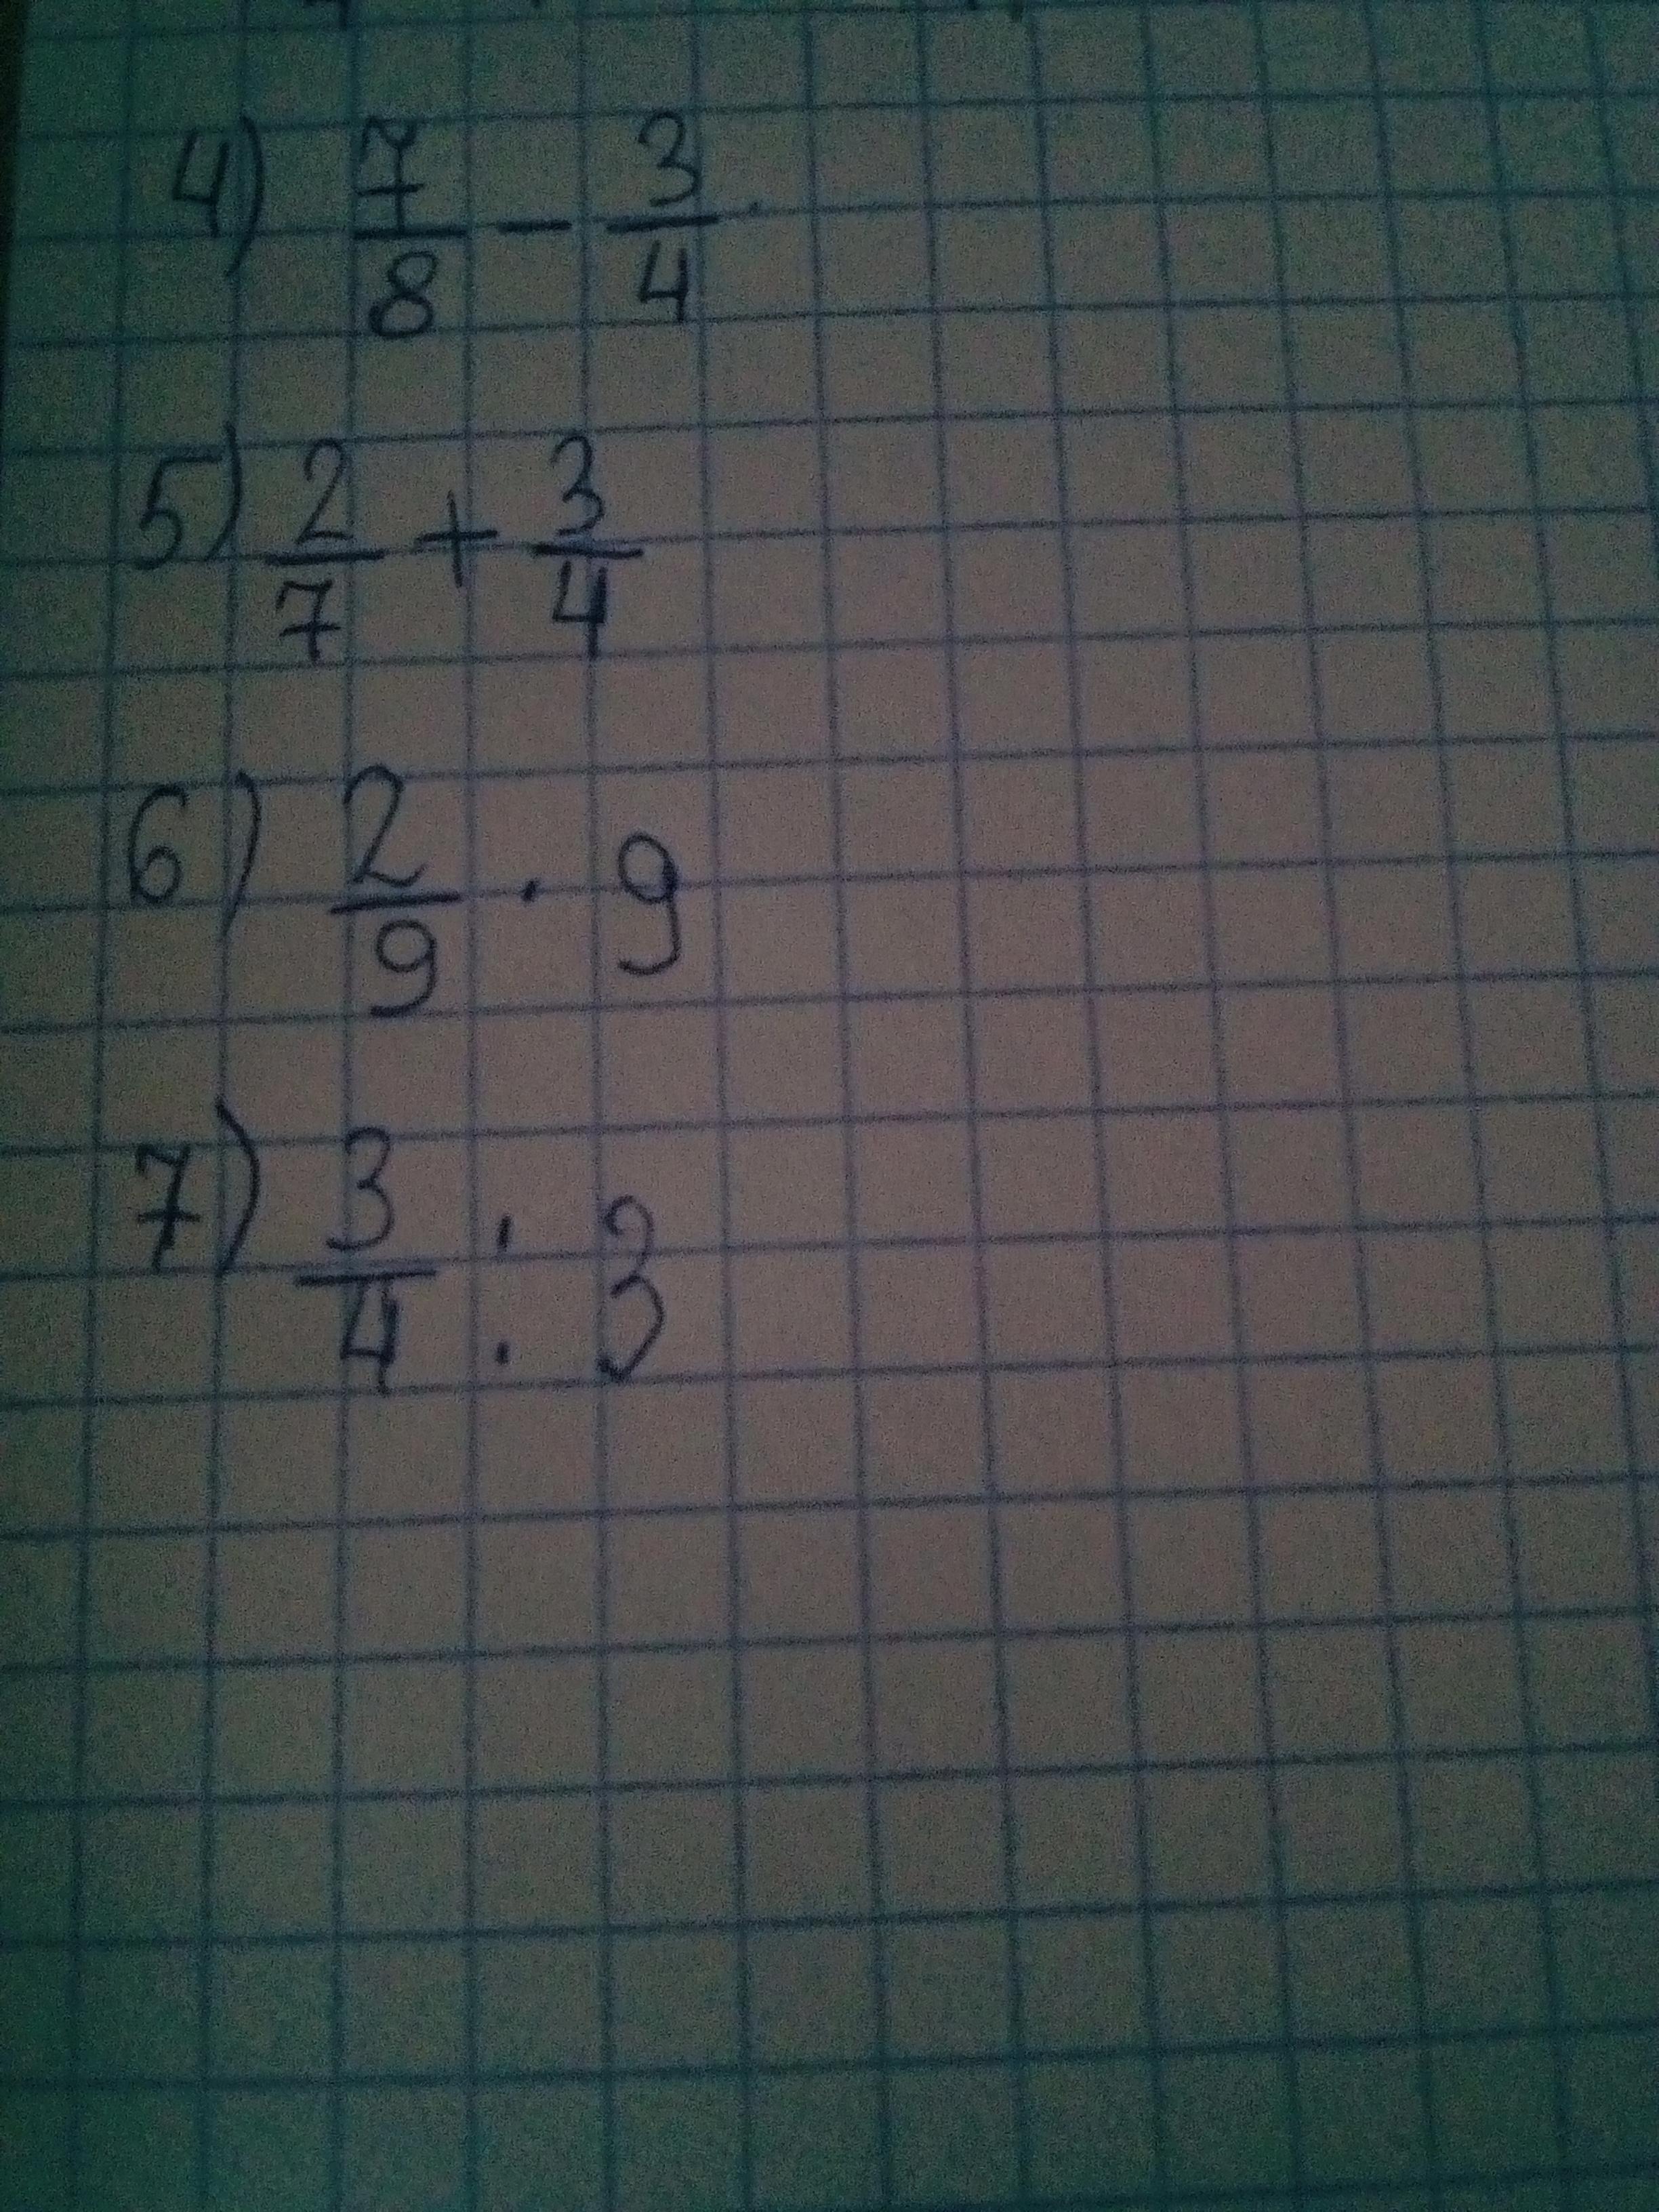 4) 7/8 - 3/4
5) 2/7 + 3/4
6) 2/9 · 9
7) 3/4 : 3